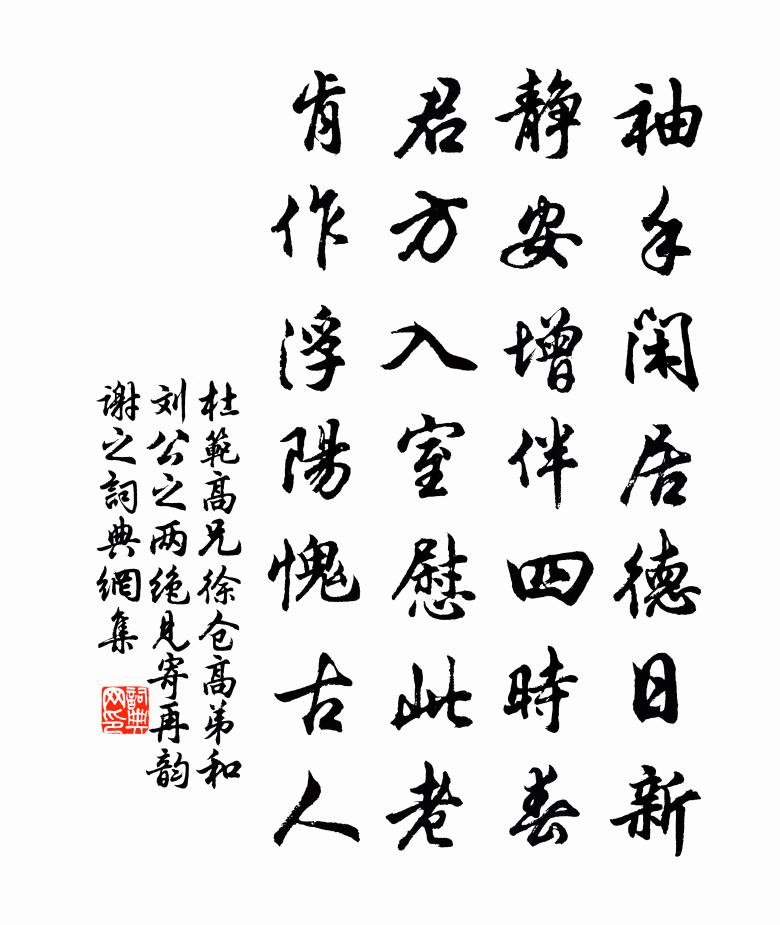 袖手閑居德日新
靜安增伴四時春
君方入室慰此老
肯作浮陽愧古人
杜範高兄徐仓高弟和
刘公之两绝見寄再韵
谢之詞典網集
詞典网印